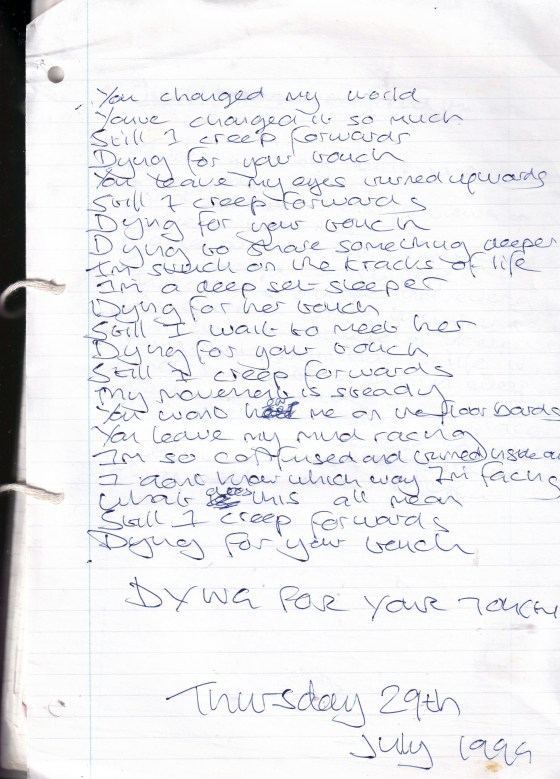 You changed my world
Youve changed it so much
Still I creep forwards
Dying for your touch
You leave my eyes turned upwards
Still I creep forwards
Dying for your touch
Dying to share something deeper
Im stuck on the tracks of life
Im a deep set sleeper
Dying for her touch
Still I wait to meet her
Dying for your touch
Still I creep forwards
My movement is steady
You wont me on the floor boards
You leave my mind racing
Im so confused and turned inside ou
I dont know which way Im facing
What does this all mean
Still I creep forwards
Dying for your touch
DYING FOR YOUR TOUCH
Thursday 29th
July 1999